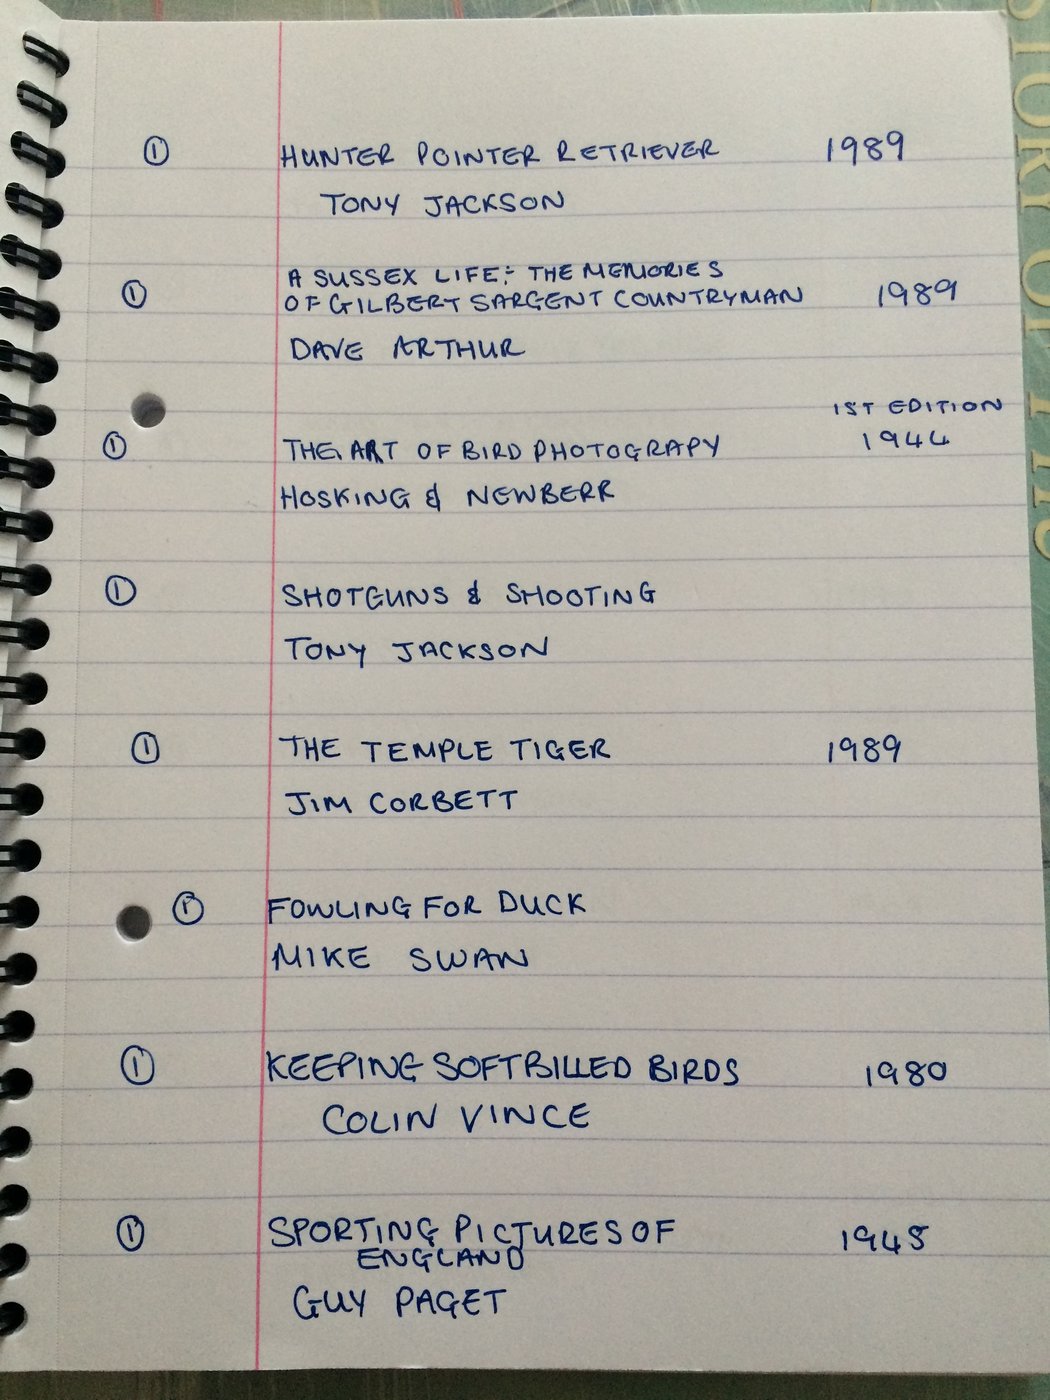 ① HUNTER POINTER RETRIEVER 1989
TONY JACKSON
A SUSSEX LIFE:- THE MEMORIES
① OF GILBERT SARGENT COUNTRYMAN 1989
DAVE ARTHUR
1ST EDITION
① THE ART OF BIRD PHOTOGRAPY 1944
HOSKING & NEWBERR
① SHOTGUNS & SHOOTING
TONY JACKSON
① THE TEMPLE TIGER 1989
JIM CORBETT
① FOWLING FOR DUCK
MIKE SWAN
① KEEPING SOFTBILLED BIRDS 1980
COLIN VINCE
① SPORTING PICTURES OF 1945
ENGLAND
GUY PAGET